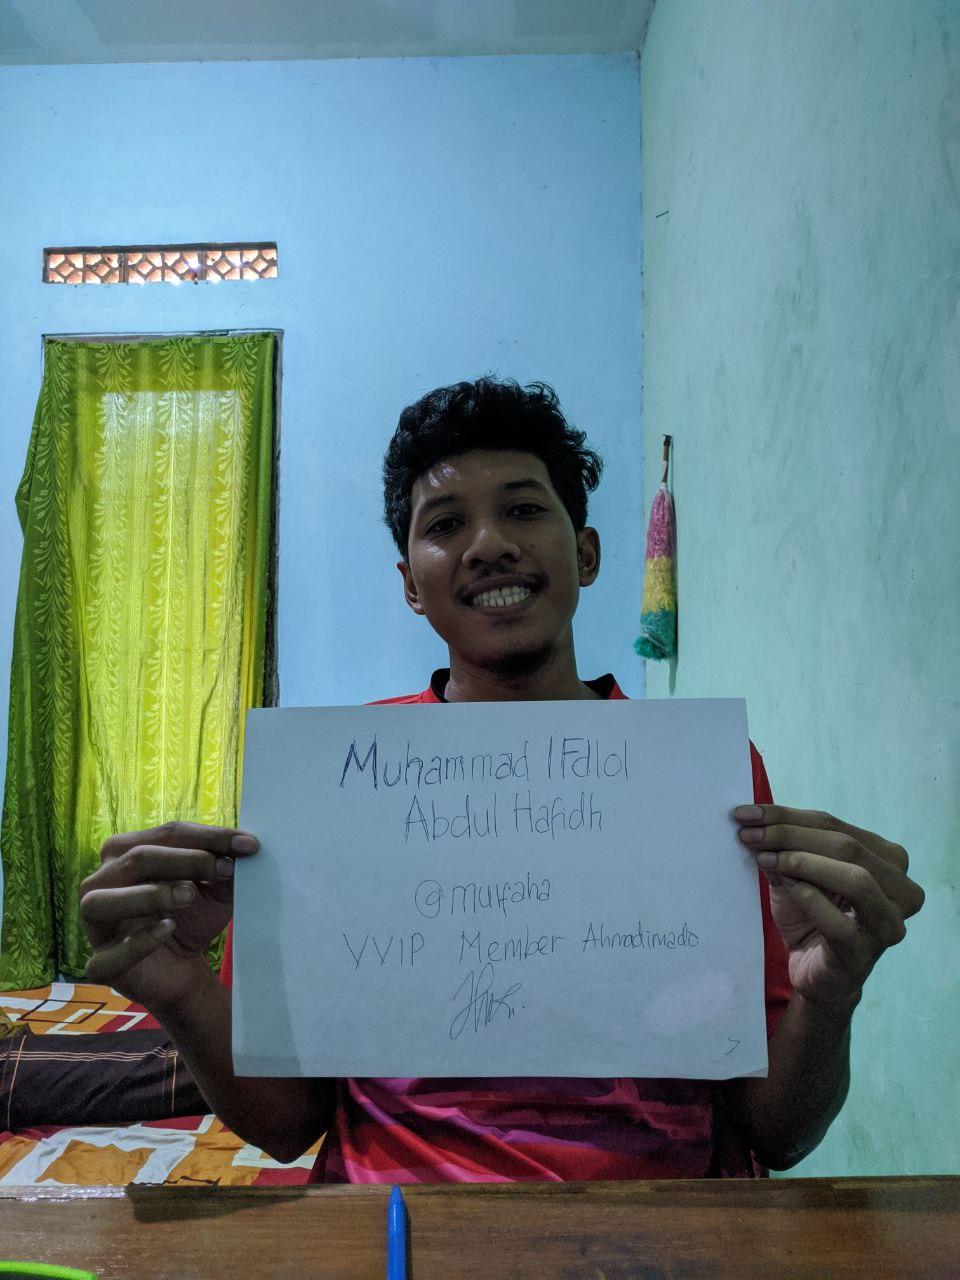 Muhammad IFdlol
Abdul Hafidh
@mulfaha
VVIP Member Ahmadimado